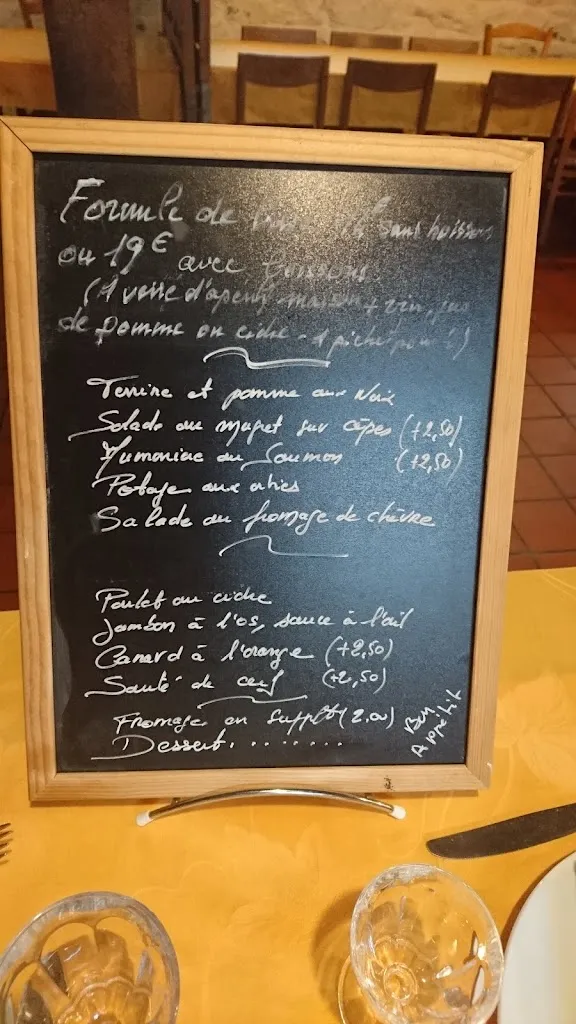 Formule de sans boissons
ou 19€ avec boissons
(1 verre d'aperitif maison + vin, jus
de pomme ou cidre - 1 pichet pour
Terrine et pomme aux Noix
Salade au magret sur cèpes (+2,50)
au Saumon (+2,50)
Potage aux orties
Salade au fromage de chèvre
Poulet au cidre
Jambon à l'os, sauce à l'ail
Canard à l'orange (+2,50)
Sauté de cerf (+2,50)
Fromages en supplt (2.00)
Dessert. . . . . . . .
Bon
Appétit